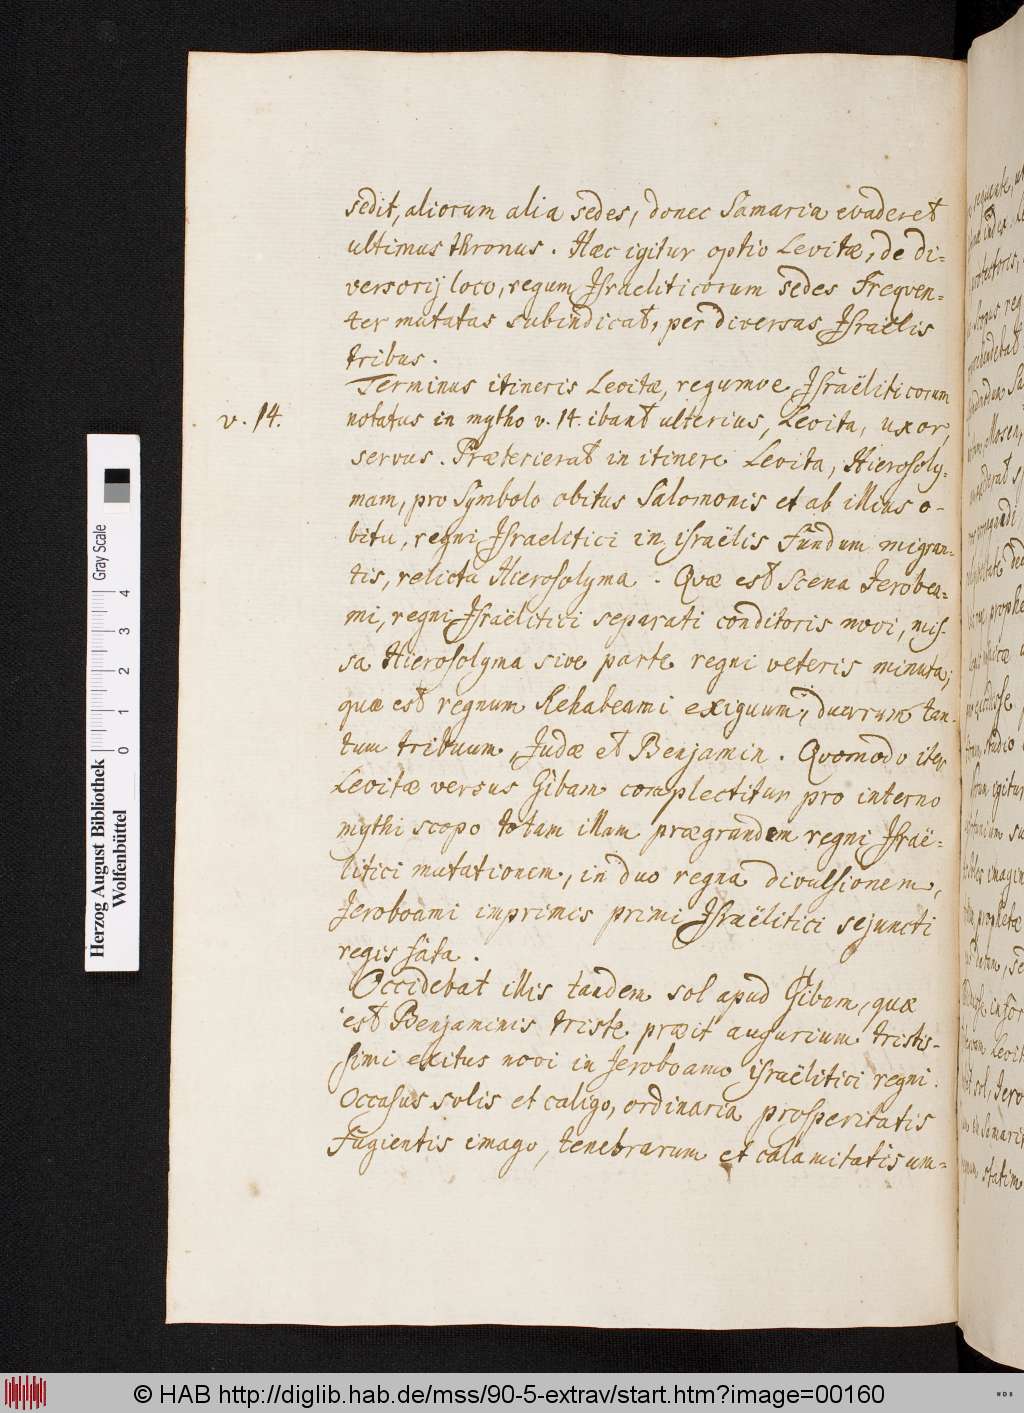 sedit, aliorum alia sedes, donec Samaria evaderet
ultimus thronus. Hæc igitur optio Levitæ, de di-
versorij loco, regum Israeliticorum sedes frequen-
ter mutatas subindicat, per diversas Israëlis
tribus.
Terminus itineris Levitæ, regumve Israëliticorum
v. 14.
notatus in mytho v. 14. ibant ulterius, Levita, uxor,
servus. Præterierat in itinere Levita, Hierosoly-
mam, pro symbolo obitus Salomonis et ab illius o-
bitu, regni Israelitici in israëlis fundum migran-
tis, relicta Hierosolyma. Quæ est scena Jerobea-
mi, regni Israëlitici separati conditoris novi, mis-
sa Hierosolyma sive parte regni veteris minuta;
quæ est regnum Rehabeami exiguum, duarum tan-
tum tribuum, Judæ et Benjamin. Quomodo iter
Levitæ versus Gibam complectitur pro interno
mythi scopo totam illam prægrandem regni Israë-
litici mutationem, in duo regna divulsionem,
Jeroboami imprimis primi Israëlitici sejuncti
regis fata.
Occidebat illis tandem sol apud Gibam, quæ
est Benjaminis triste præit augurium tristis-
simi exitus novi in Jeroboamo israëlitici regni.
Occasus solis et caligo, ordinaria prosperitatis
fugientis imago, tenebrarum et calamitatis um-
Herzog August Bibliothek
Wolfenbüttel
Gray Scale
0 1 2 3 4
© HAB http://diglib.hab.de/mss/90-5-extrav/start.htm?image=00160